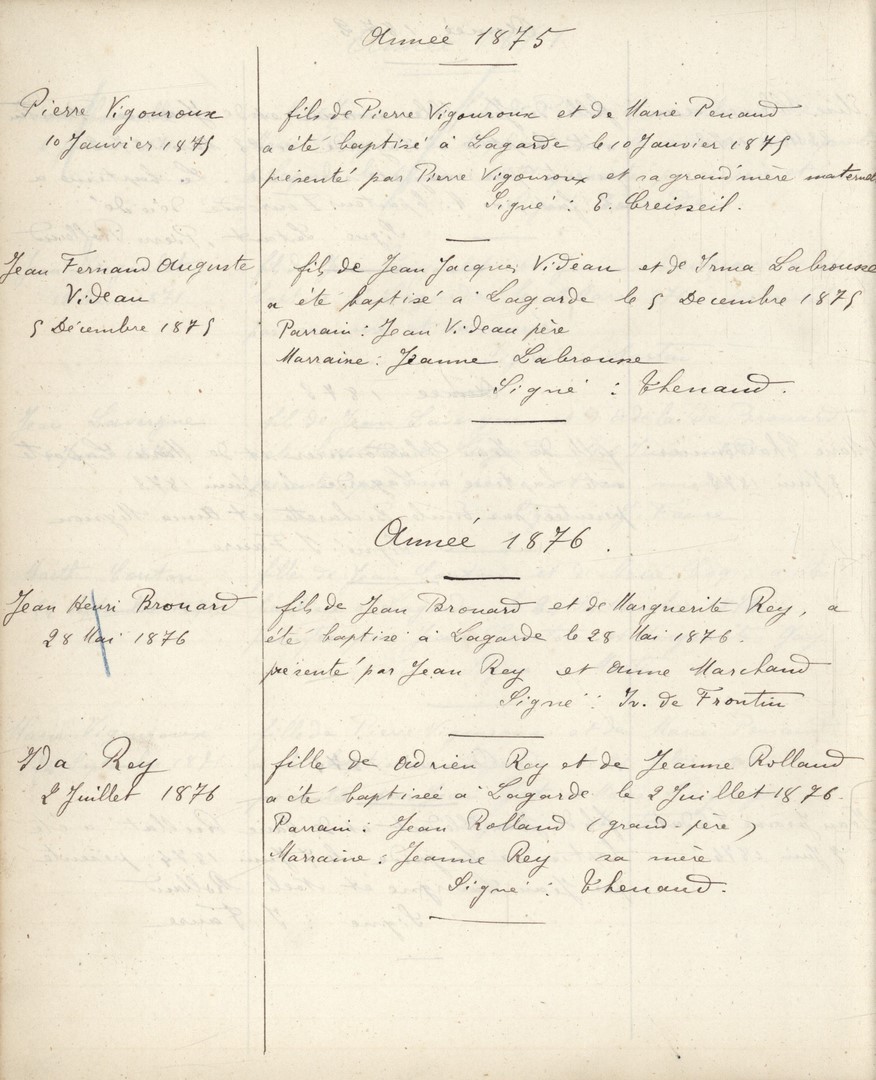 Année 1875
Pierre Vigouroux
10 Janvier 1875
fils de Pierre Vigouroux et de Marie Penaud
a été baptisé à Lagarde le 10 Janvier 1875
présenté par Pierre Vigouroux et sa grand'mère maternel
Signé : E. Creisseil.
Jean Fernand Auguste
Videau
5 Décembre 1875
fils de Jean Jacques Videau et de Irma Labrousse
a été baptisé à Lagarde le 5 Decembre 1875
Parrain : Jean Videau père
Marraine : Jeanne Labrousse
Signé : Thenaud.
Année 1876.
Jean Henri Brouard
28 Mai 1876
fils de Jean Brouard et de Marguerite Rey, a
été baptisé à Lagarde le 28 Mai 1876.
présenté par Jean Rey et Anne Marchand
Signé : Iv. de Frontin
Ida Rey
2 Juillet 1876
fille de Adrien Rey et de Jeanne Rolland
a été baptiseé à Lagarde le 2 Juillet 1876.
Parrain : Jean Rolland (grand-père)
Marraine : Jeanne Rey sa mère
Signé : Thenaud.